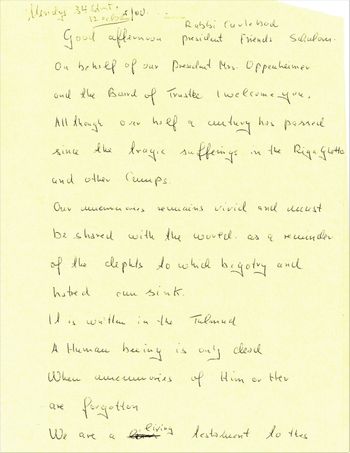 Rabbi Carlebad
Good afternoon president Friends Schalom.
On behalf of our President Mrs. Oppenheimer
and the Board of Trustee I welcome you.
All though over half a century has passed
since the tragic sufferings in the Riga Ghetto
and other Camps
Our memories remains vivid and must
be shared with the world. as a reminder
of the dephts to which bigotry and
hatred can sink.
It is written in the Talmud
A Human being is only dead
When memories of Him or Her
are forgotten
We are a living testament to this